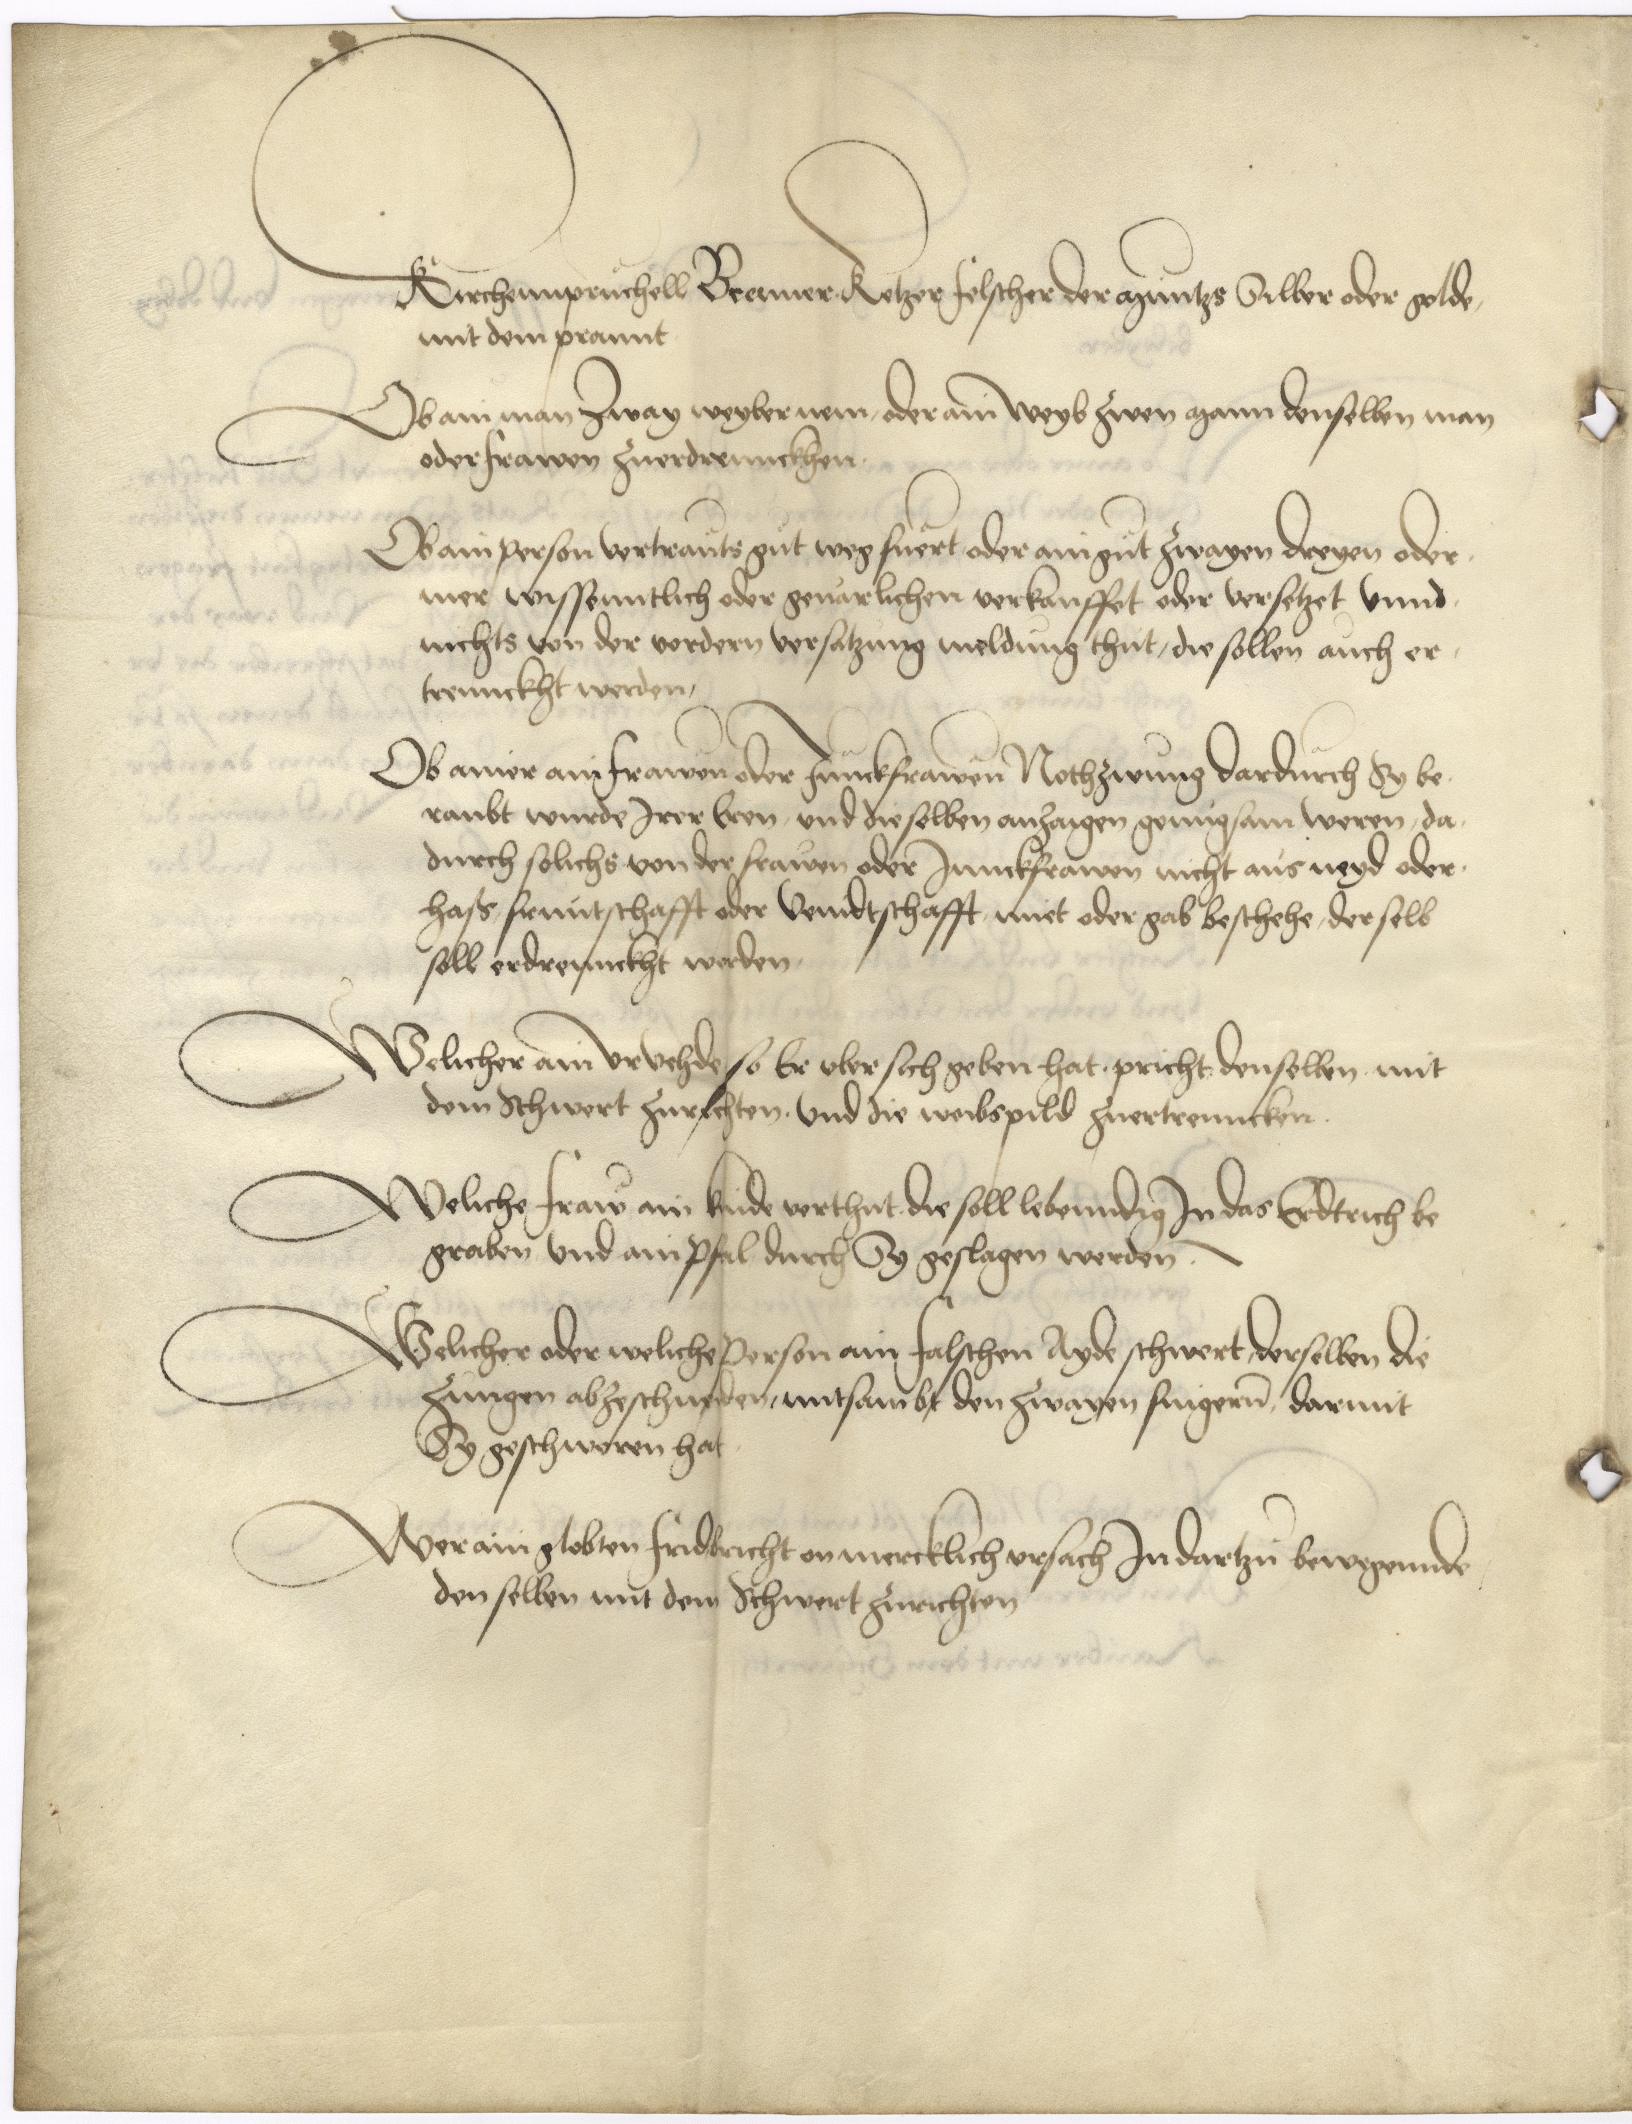 Kirchennpruchell Brenner Ketzer felscher der Müntzs Silber oder golde,
mit dem prannt
Ob ain man Zway weyber nem, oder ain weyb zwen Mann denselben man
oder frawen zuerdrennckhen.
Ob ain person vertrauts gut weg fuert oder ain gut zwayen dreyen oder
mer wissenntlich oder geuarlichen verkauffet oder versetzet vnnd
nichts von der vordern versatzung meldung thut, die sollen auch er
trennckht werden,
Ob ainer ain frawen oder Junckfrawen Nothzwung dardurch Sy be
raubt wurde Irer Eren, vnd dieselben anzaigen genugsam weren, da
durch solichs von der frawen oder Junckfrawen nicht aus neyd oder
hass, fruntschafft oder Veindtschafft, miet oder gab beschehe, derselb
soll erdrennckht werden.
Welicher ain vrvehde so Er vber sich geben hat, pricht, denselben mit
dem Schwert zurichten. Vnd die weibspild zuertrenncken.
Weliche fraw ain kinde verthut, die soll lebenndig In das Erdtrich be
graben vnd ain Pfal durch Sy geslagen werden.
Welicher oder weliche Person ain falschen Ayde schwert, derselben die
zungen abzeschneyden, mitsambt den zwayen fingern, darmit
Sy geschworen hat.
Wer ain globten frid bricht on mercklich vrsach In dartzu bewegennde
den selben mit dem Schwert zurichten